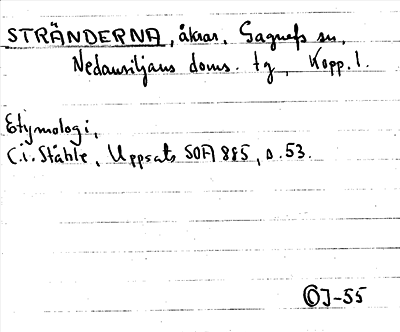 STRÄNDERNA, åkrar, Gagnefs sn,
Nedansiljans doms. tg, Kopp. l.
Etymologi,
C.I. Ståhle, Uppsats SOA 885, s. 53.
ÖJ-55